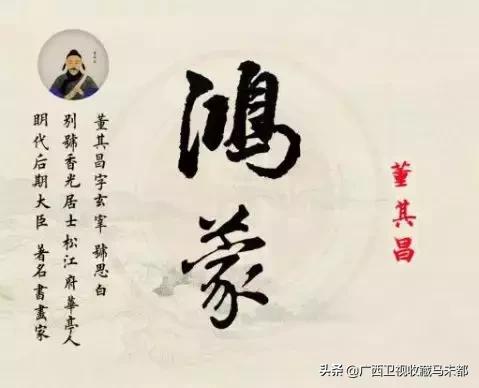 董其昌
鴻蒙
董其昌字玄宰 號思白
别號香光居士松江府華亭人
明代后期大臣 著名書畫家
头条 @广西卫视收藏马未都